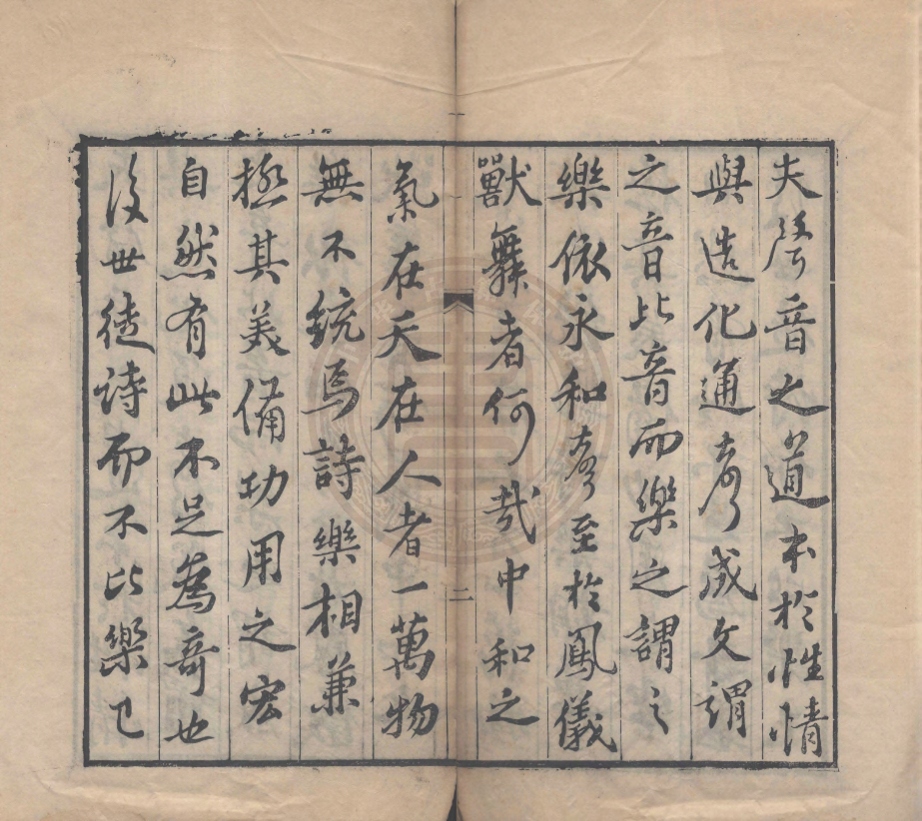 夫聲音之道本於性情
與造化通聲成文謂
之音比音而樂之謂之
樂依永和聲至於鳳儀
獸舞者何哉中和之
二
氣在天在人者一萬物
無不統焉詩樂相兼
極其美備功用之宏
自然有此不足為奇也
後世徒詩而不比樂已